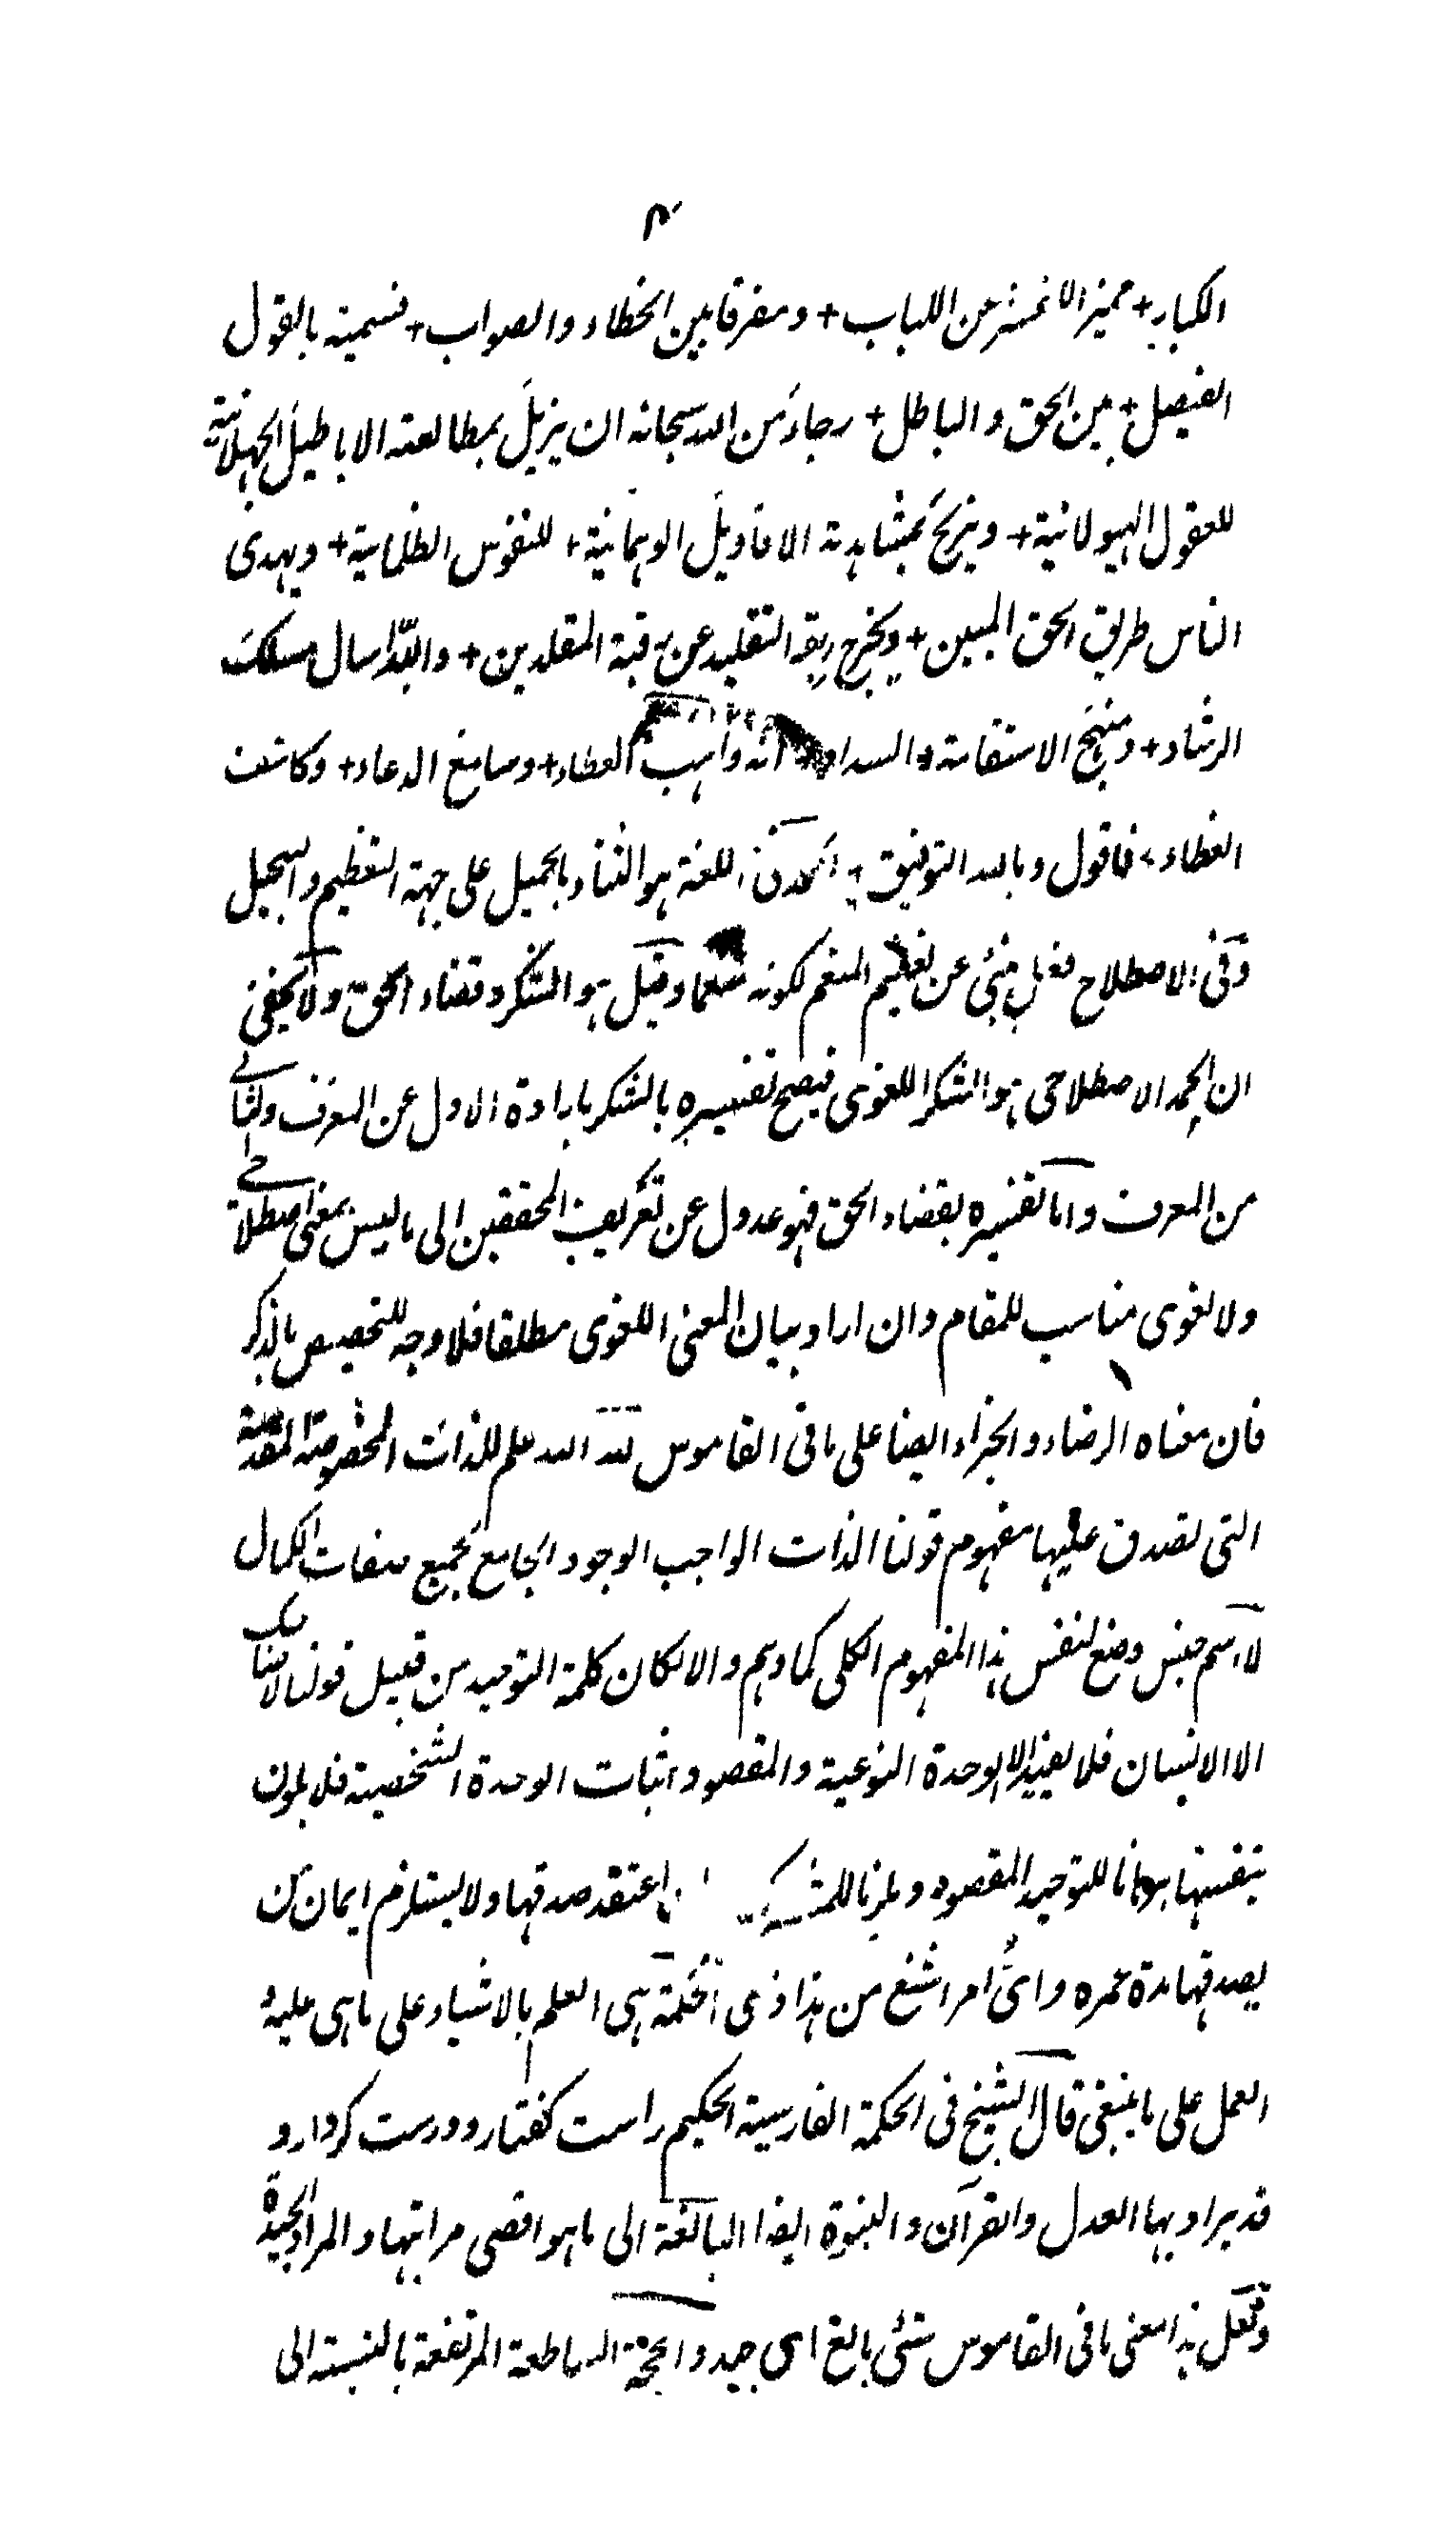 ۴
الكبار + مميزا للقشر عن اللباب + ومفرقا بين الخطاء والصواب + فسميته بالقول
الفيصل + بين الحق والباطل + رجاء من الله سبحانه ان يزيل بمطالعته الاباطيل الجهلانية
للعقول الهيولانية + ويزيح بمشاهدته الاقاويل الوهمانية + للنفوس الظلمانية + ويهدى
الناس طريق الحق المبين + ويخرج ربقة التقليد عن رقبة المقلدين + والله اسال مسلك
الرشاد + ومنهج الاستقامة والسداد انه واهب العطاء + وسامع الدعاء + وكاشف
الغطاء + فاقول وبالله التوفيق + الحمد فى اللغة هو الثناء بالجميل على جهة التعظيم والتبجيل
وفى الاصطلاح فعل ينبئ عن تعظيم المنعم لكونه منعما وقيل هو الشكر وقضاء الحق ولا يخفى
ان الحمد الاصطلاحى هو الشكر اللغوى فيصح تفسيره بالشكر بارادة الاول عن المعرف والثانى
من المعرف واما تفسيره بقضاء الحق فهو عدول عن تعريف المحققين الى ما ليس بمعنى اصطلاحى
ولا لغوى مناسب للمقام وان اراد بيان المعنى اللغوى مطلقا فلا وجه للتخصيص بالذكر
فان معناه الرضاء والجزاء ايضا على ما فى القاموس لله الله علم للذات المخصوصة المقدسة
التى تصدق عليها مفهوم قولنا الذات الواجب الوجود الجامع لجميع صفات الكمال
لا اسم جنس وضع لنفس هذا المفهوم الكلى كما وهم والا لكان كلمة التوحيد من قبيل قولنا لا ضاحك
الا الانسان فلا يفيد الا الوحدة النوعية والمقصود اثبات الوحدة الشخصية فلا يكون
بنفسها بيانا للتوحيد المقصود و للمشرك اعتقد صدقها ولا يستلزم ايمان من
يصدقها مدة عمره واىّ امر اشنع من هذا ذى الحكمة هى العلم بالاشياء على ما هى عليه و
العمل على ما ينبغى قال الشيخ فى الحكمة الفارسية الحكيم راست گفتار و درست كردار و
قد يراد بها العدل والقرآن والنبوة ايضا البالغة الى ما هو اقصى مراتبها والمراد الجيدة
ولعل هذا معنى ما فى القاموس شئ بالغ اى جيد والحجة الساطعة المرتفعة بالنسبة الى